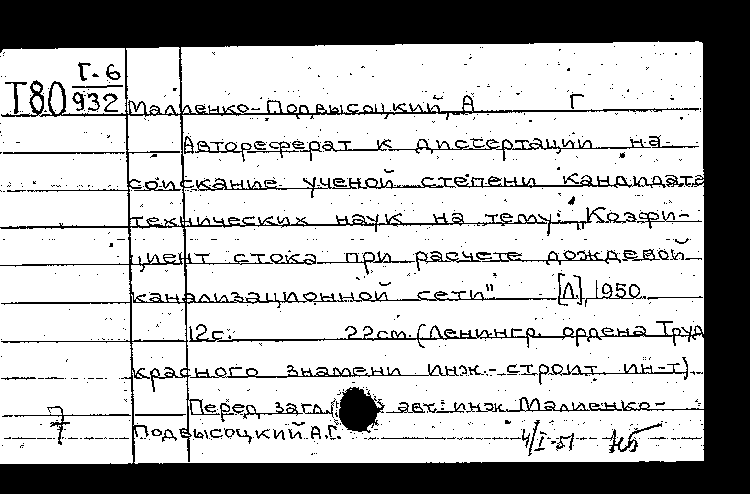 Т80 Г-6
932 Малиенко-Подвысоцкий, А Г
Автореферат к диссертации на
соискание ученой степени кандидата
технических наук на тему: „Коэфи-
циент стока при расчете дождевой
канализационной сети" [Л], 1950.
12с. 22см. (Ленингр. ордена Труд
красного знамени инж.-строит. ин-т).
Перед загл. авт: инж Малиенко-
7 Подвысоцкий А.Г.
4/I-51